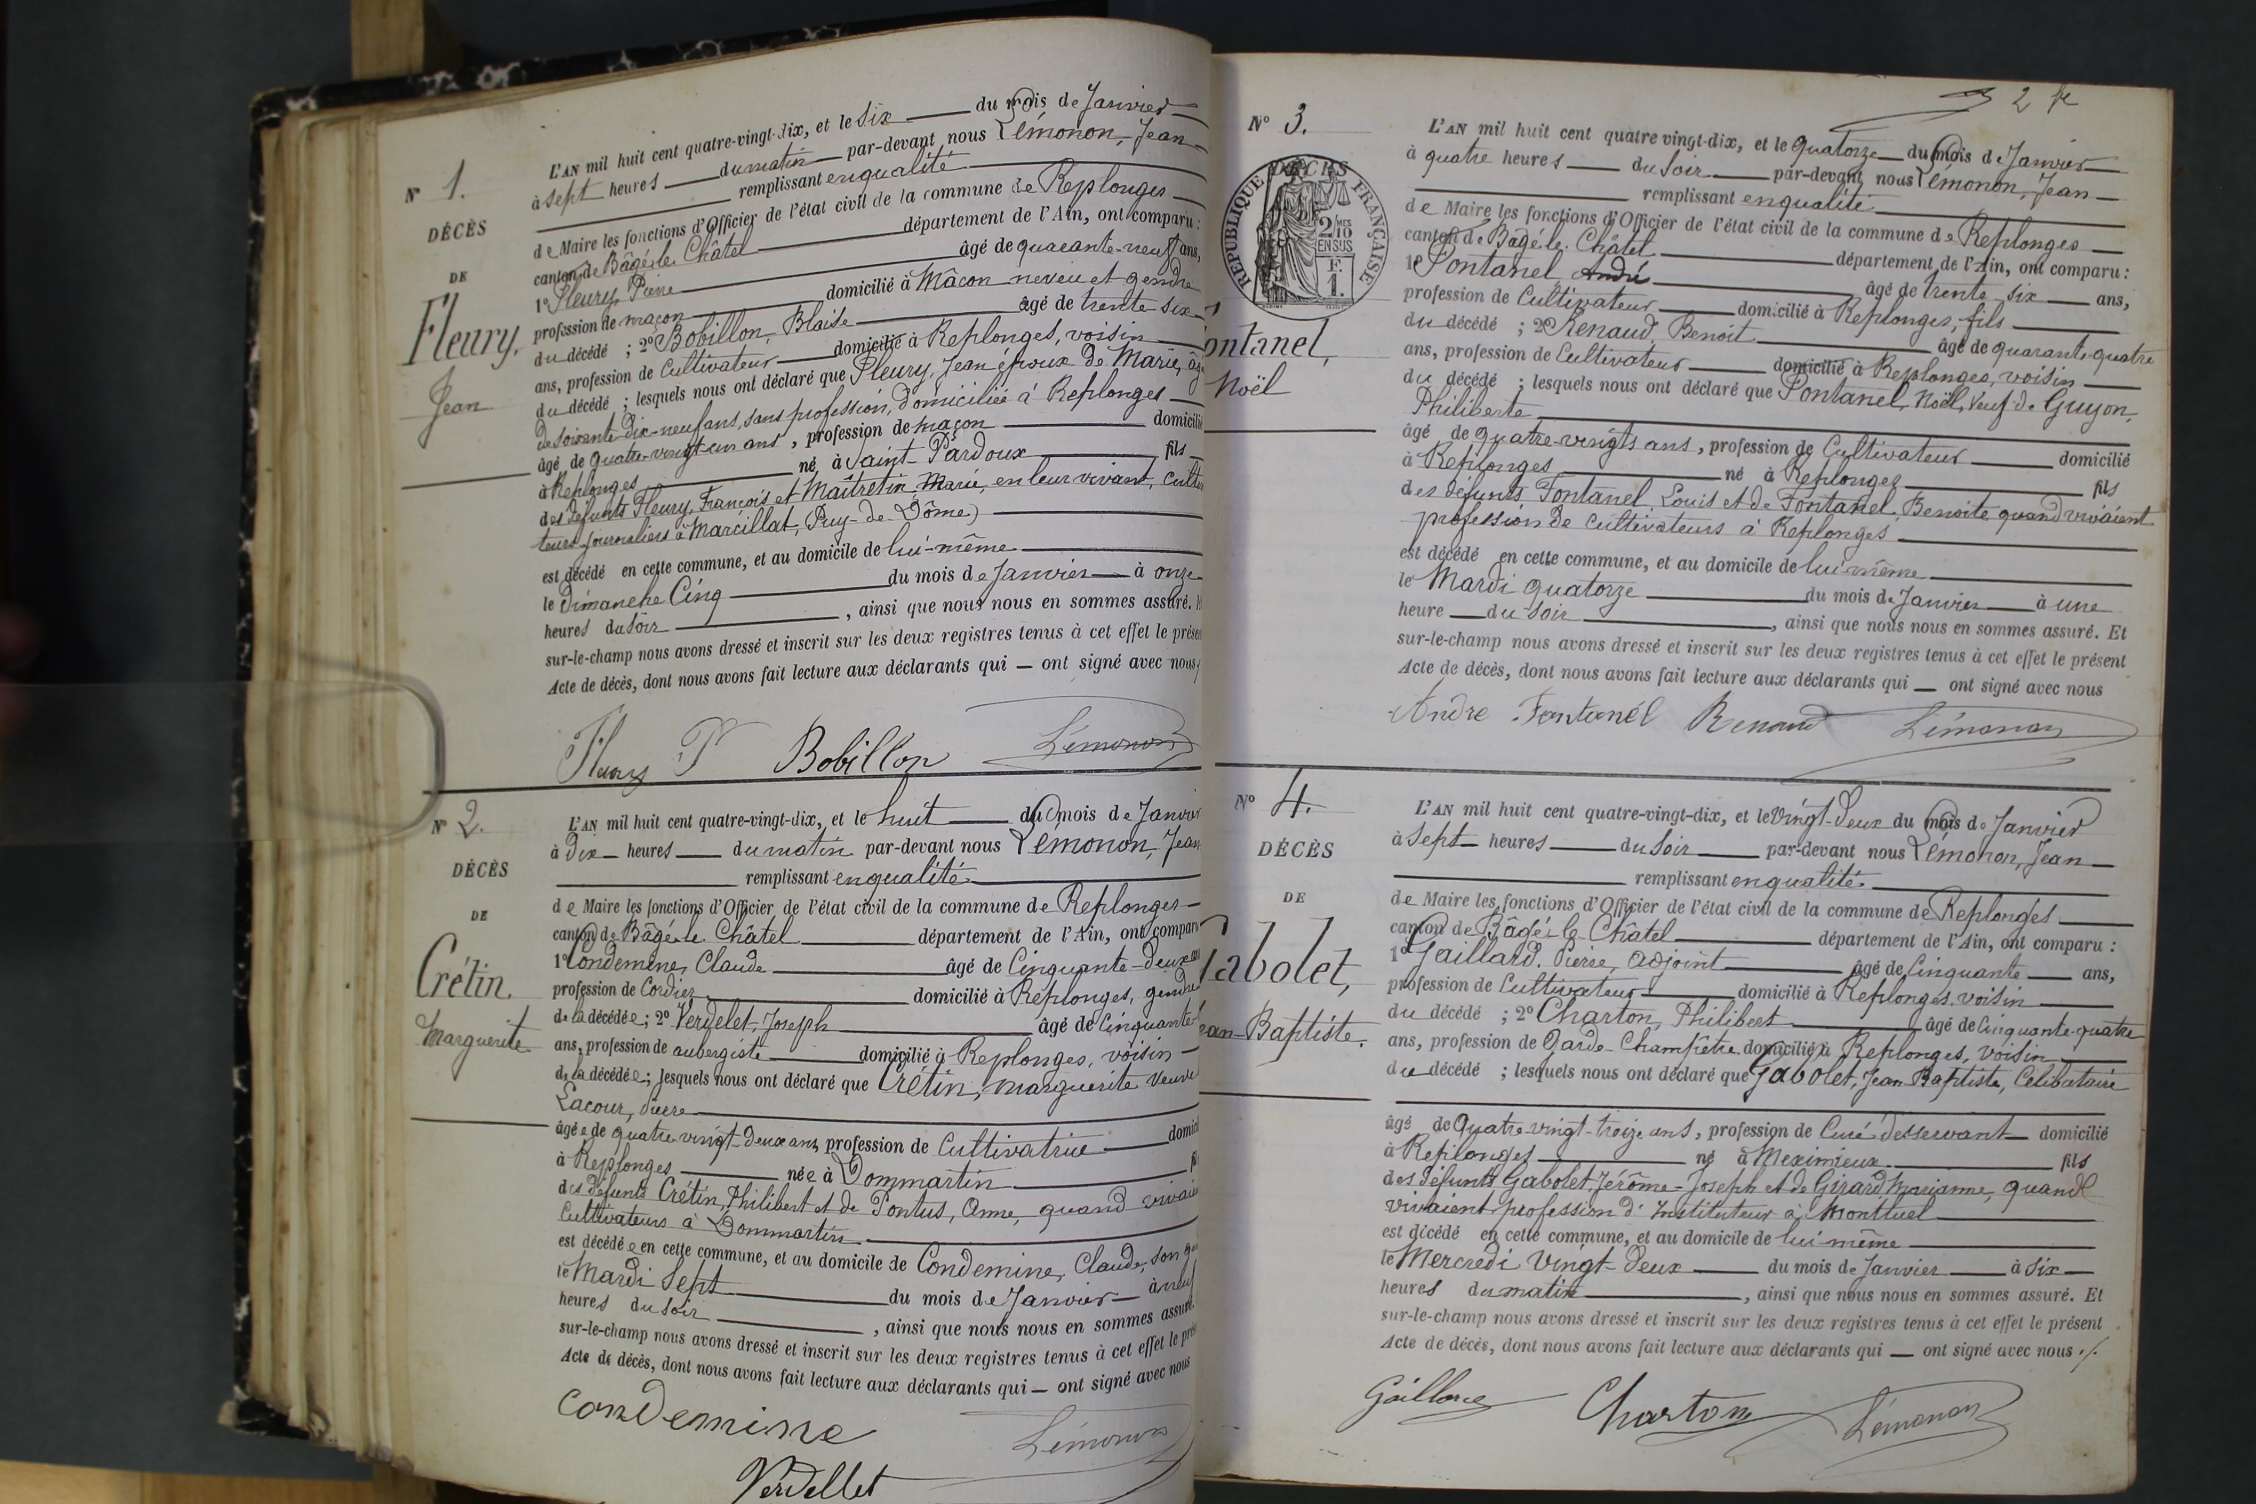 N° 1.
DÉCÈS
DE
Fleury,
Jean
L'AN mil huit cent quatre-vingt-dix, et le six du mois de Janvier
à sept heures du matin par-devant nous Lémonon, Jean
remplissant en qualité
de Maire les fonctions d'Officier de l'état civil de la commune de Replonges
canton de Bâgé-le-Châtel département de l'Ain, ont comparu :
1° Fleury, Pierre âgé de quarante-neuf ans,
profession de maçon domicilié à Mâcon neveu et gendre
du décédé ; 2° Bobillon, Blaise âgé de trente six
ans, profession de Cultivateur domicilié à Replonges, voisin
du décédé ; lesquels nous ont déclaré que Fleury, Jean époux de Marie, âg
de soixante-dix-neuf ans, sans profession, domiciliée à Replonges
âgé de quatre-vingt-un ans, profession de maçon domicilié
à Replonges né à Saint-Pardoux fils
des défunts Fleury, François et Maîtretin, Marie, en leur vivant, culti
teurs journaliers à Marcillat, (Puy-de-Dôme)
est décédé en cette commune, et au domicile de lui-même
le dimanche Cinq du mois de Janvier à onze
heures du soir, ainsi que nous nous en sommes assuré.
sur-le-champ nous avons dressé et inscrit sur les deux registres tenus à cet effet le présen
Acte de décès, dont nous avons fait lecture aux déclarants qui — ont signé avec nous
Fleury P Bobillon Lémonon
N° 2.
DÉCÈS
DE
Crétin.
Marguerite
L'AN mil huit cent quatre-vingt-dix, et le huit du mois de Janvi
à Dix heures du matin par-devant nous Lémonon, Jean
remplissant en qualité
de Maire les fonctions d'Officier de l'état civil de la commune de Replonges
canton de Bâgé-le-Châtel département de l'Ain, ont compar
1° Condemine, Claude âgé de Cinquante-deux an
profession de Cordier domicilié à Replonges, gendre
de la décédée ; 2° Verdelet, Joseph âgé de Cinquante-
ans, profession de aubergiste domicilié à Replonges, voisin
de la décédée ; lesquels nous ont déclaré que Crétin, Marguerite veuve
Lacour,
âgée de quatre-vingt-deux ans, profession de Cultivatrice domici
à Replonges née à Dommartin fil
des défunts Crétin, Philibert et de Pontus, Anne, quand vivaie
Cultivateurs à Dommartin
est décédée en cette commune, et au domicile de Condemine, Claude, son ge
le Mardi Sept du mois de Janvier à neuf
heures du soir, ainsi que nous nous en sommes assuré.
sur-le-champ nous avons dressé et inscrit sur les deux registres tenus à cet effet le prés
Acte de décès, dont nous avons fait lecture aux déclarants qui — ont signé avec nous
Condemine Lémonon
Verdellet
2
N° 3.
RÉPUBLIQUE FRANÇAISE
2 MES
10
EN SUS
F.
1.
ontanel,
Noël
L'AN mil huit cent quatre vingt-dix, et le quatorze du mois de Janvier
à quatre heures du soir par-devant nous Lémonon, Jean
remplissant en qualité
de Maire les fonctions d'Officier de l'état civil de la commune de Replonges
canton de Bâgé-le-Châtel département de l'Ain, ont comparu :
1° Fontanel, André âgé de trente six ans,
profession de Cultivateur domicilié à Replonges, fils
du décédé ; 2° Renaud, Benoit âgé de quarante-quatre
ans, profession de Cultivateur domicilié à Replonges, voisin
du décédé ; lesquels nous ont déclaré que Fontanel, Noël, Veuf de Guyon,
Philiberte
âgé de quatre-vingts ans, profession de Cultivateur domicilié
à Replonges né à Replonges fils
des défunts Fontanel, Louis et de Fontanel, Benoite quand vivaient
profession de cultivateurs à Replonges
est décédé en cette commune, et au domicile de lui-même
le Mardi quatorze du mois de Janvier à une
heure du soir, ainsi que nous nous en sommes assuré. Et
sur-le-champ nous avons dressé et inscrit sur les deux registres tenus à cet effet le présent
Acte de décès, dont nous avons fait lecture aux déclarants qui — ont signé avec nous
André Fontanél Renaud Lémonon
N° 4.
DÉCÈS
DE
Gabolet,
ean-Baptiste.
L'AN mil huit cent quatre-vingt-dix, et le Vingt-Deux du mois de Janvier
à Sept heures du Soir par-devant nous Lémonon, Jean
remplissant en qualité
de Maire les fonctions d'Officier de l'état civil de la commune de Replonges
canton de Bâgé-le-Châtel département de l'Ain, ont comparu :
1° Gaillard, Pierre, adjoint âgé de Cinquante ans,
profession de Cultivateur domicilié à Replonges, voisin
du décédé ; 2° Charton, Philibert âgé de Cinquante-quatre
ans, profession de Garde-Champêtre domicilié à Replonges, voisin
du décédé ; lesquels nous ont déclaré que Gabolet, Jean Baptiste, Célibataire
âgé de Quatre-vingt-treize ans, profession de Curé desservant domicilié
à Replonges né à Meximieux fils
des défunts Gabolet, Jérôme-Joseph et de Girard Marianne, quand
vivaient profession d'Instituteur à Montluel
est décédé en cette commune, et au domicile de lui-même
le Mercredi Vingt-Deux du mois de Janvier à Six
heures du matin, ainsi que nous nous en sommes assuré. Et
sur-le-champ nous avons dressé et inscrit sur les deux registres tenus à cet effet le présent
Acte de décès, dont nous avons fait lecture aux déclarants qui — ont signé avec nous ./.
Gaillard Charton Lémonon